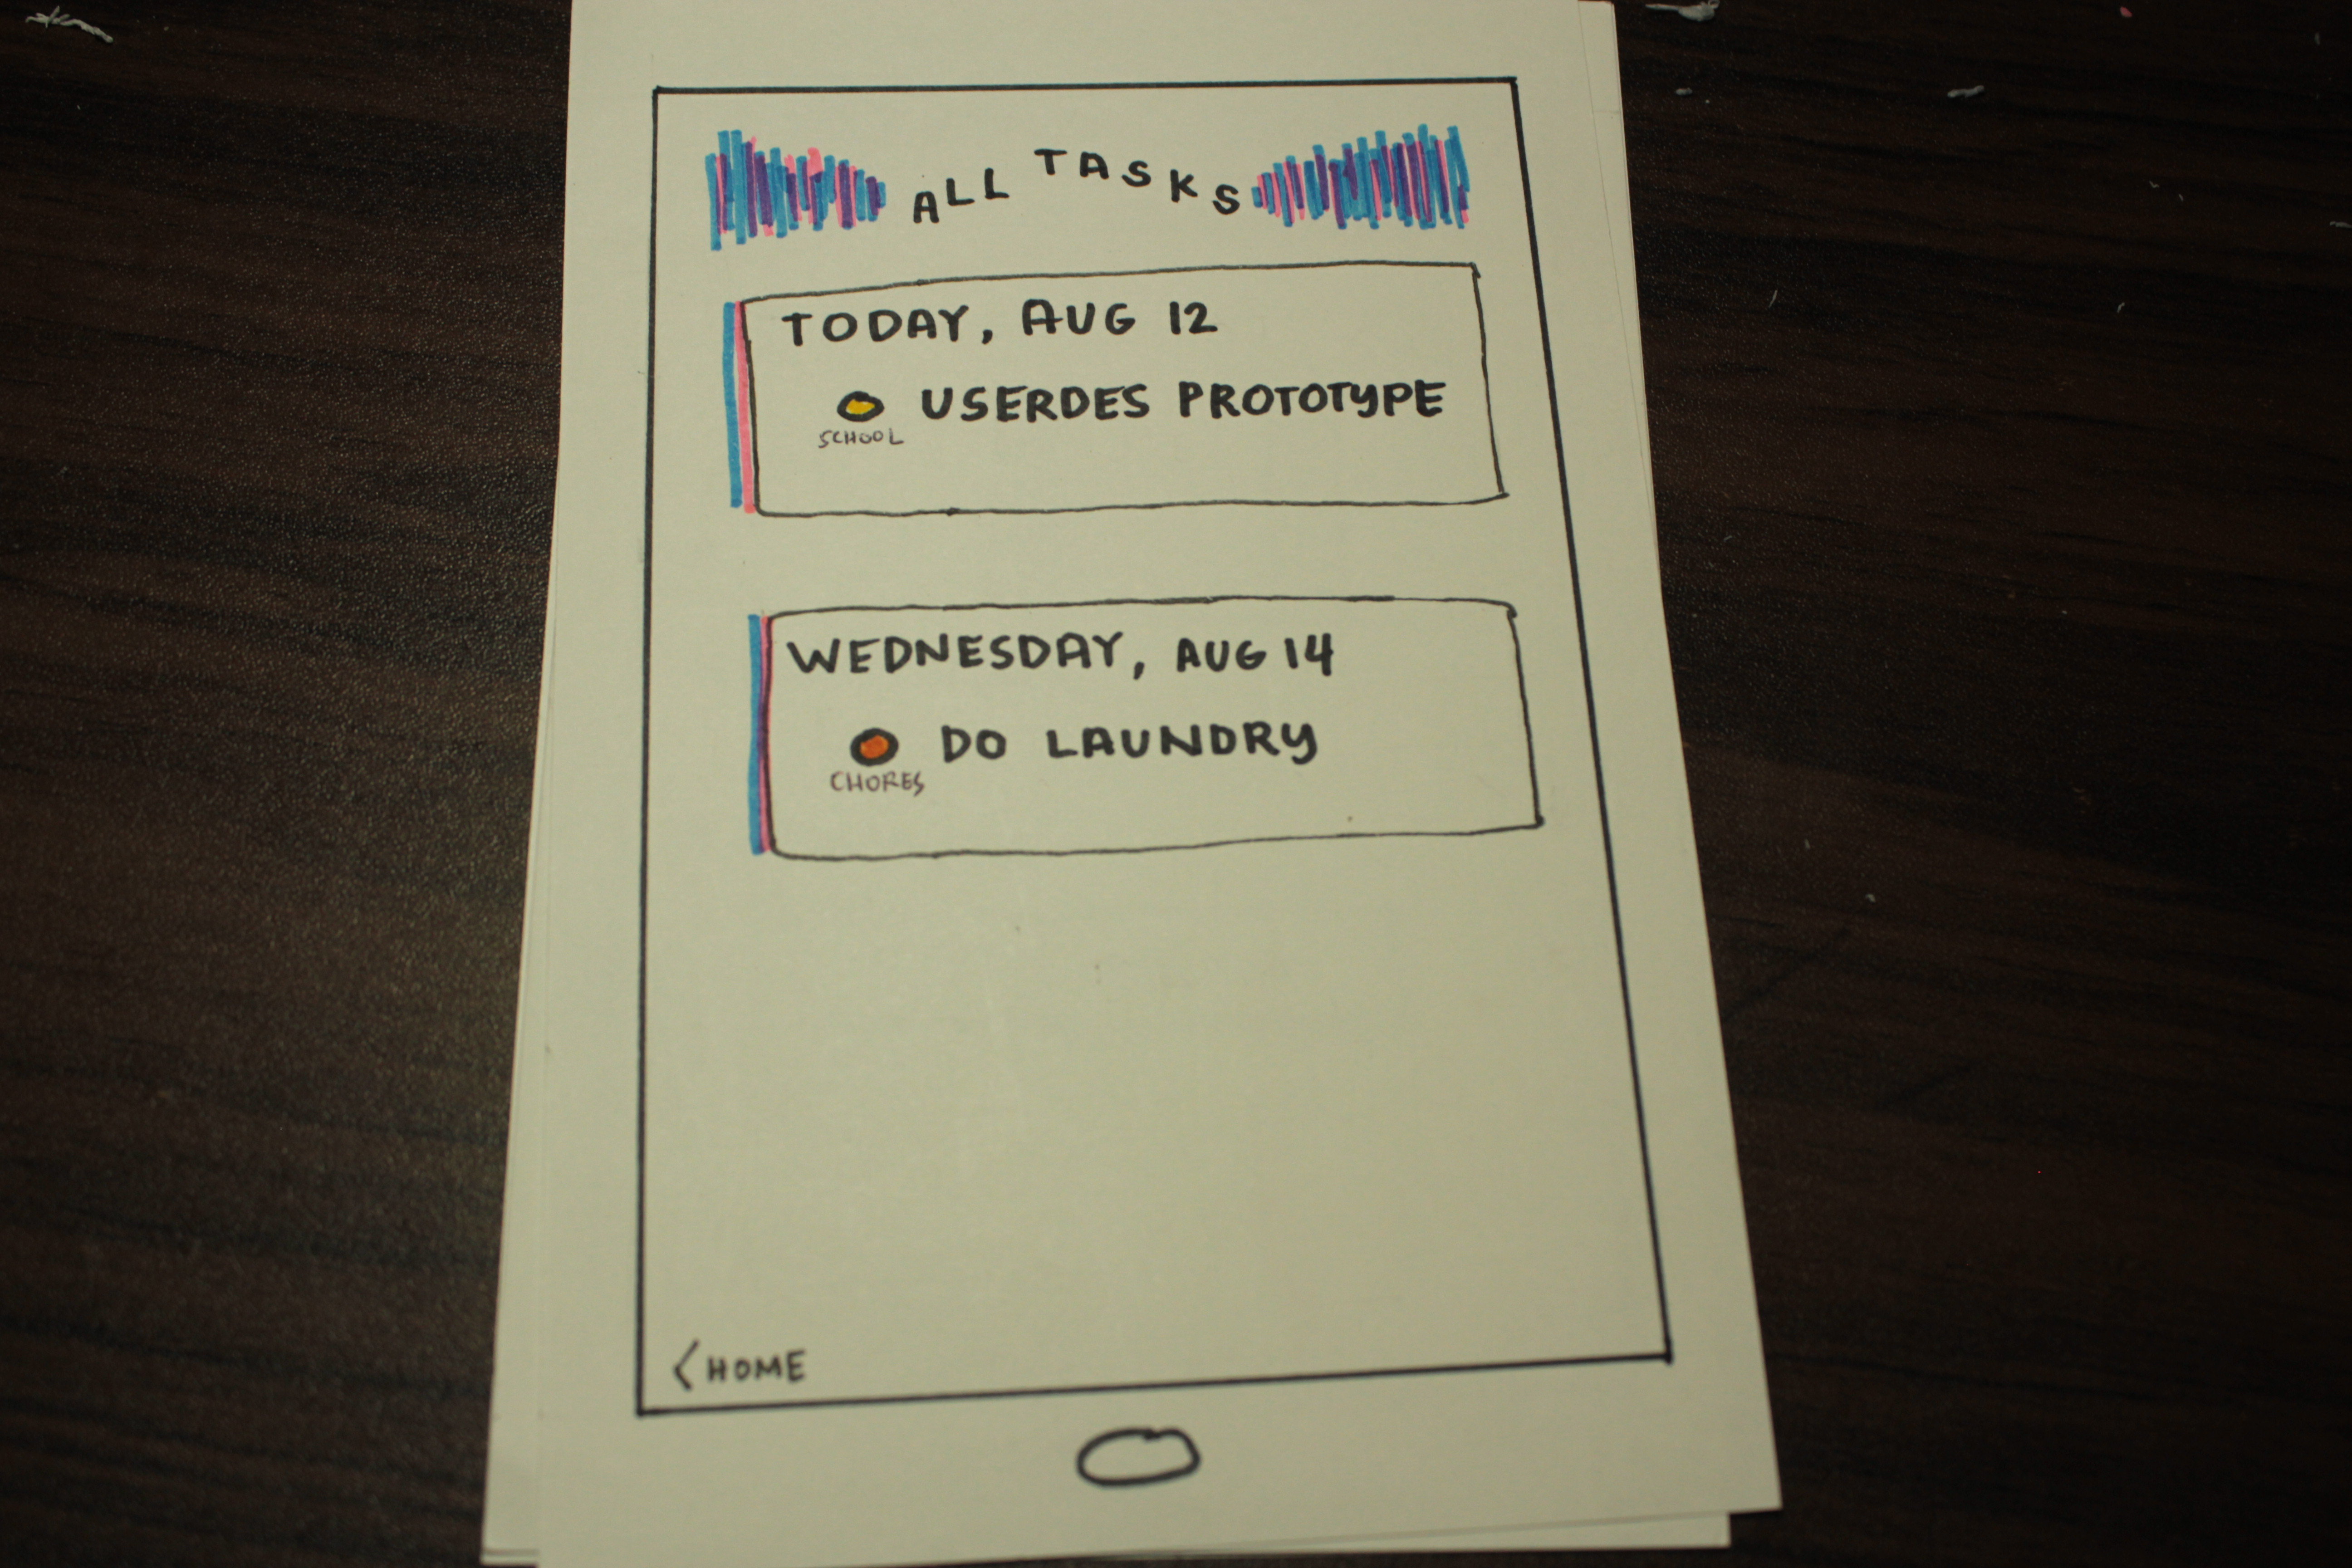 ALL TASKS
TODAY, AUG 12
USERDES PROTOTYPE
SCHOOL
WEDNESDAY, AUG 14
DO LAUNDRY
CHORES
< HOME